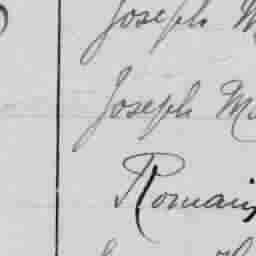 Joseph M
Joseph Mo
Romain